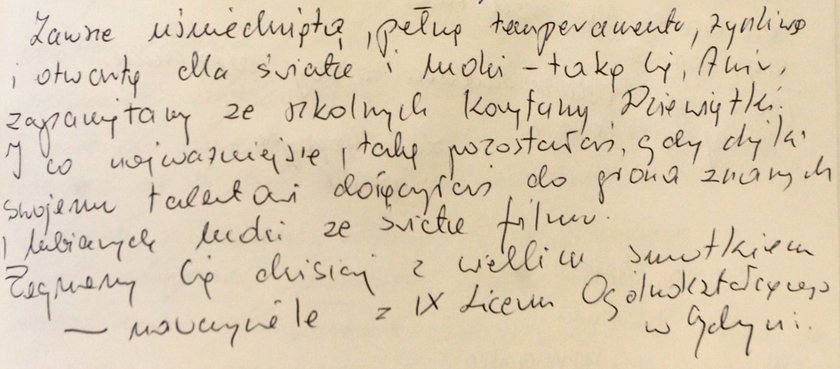 Zawsze uśmiechniętą, pełną temperamentu, życzliwą
i otwartą dla świata i ludzi – taką Cię, Aniu,
zapamiętamy ze szkolnych korytarzy Dziewiątki.
I co najważniejsze, taką pozostałaś, gdy dzięki
swojemu talentowi dołączyłaś do grona znanych
i lubianych ludzi ze świata filmu.
Żegnamy Cię dzisiaj z wielkim smutkiem
— nauczyciele z IX Liceum Ogólnokształcącego
w Gdyni.